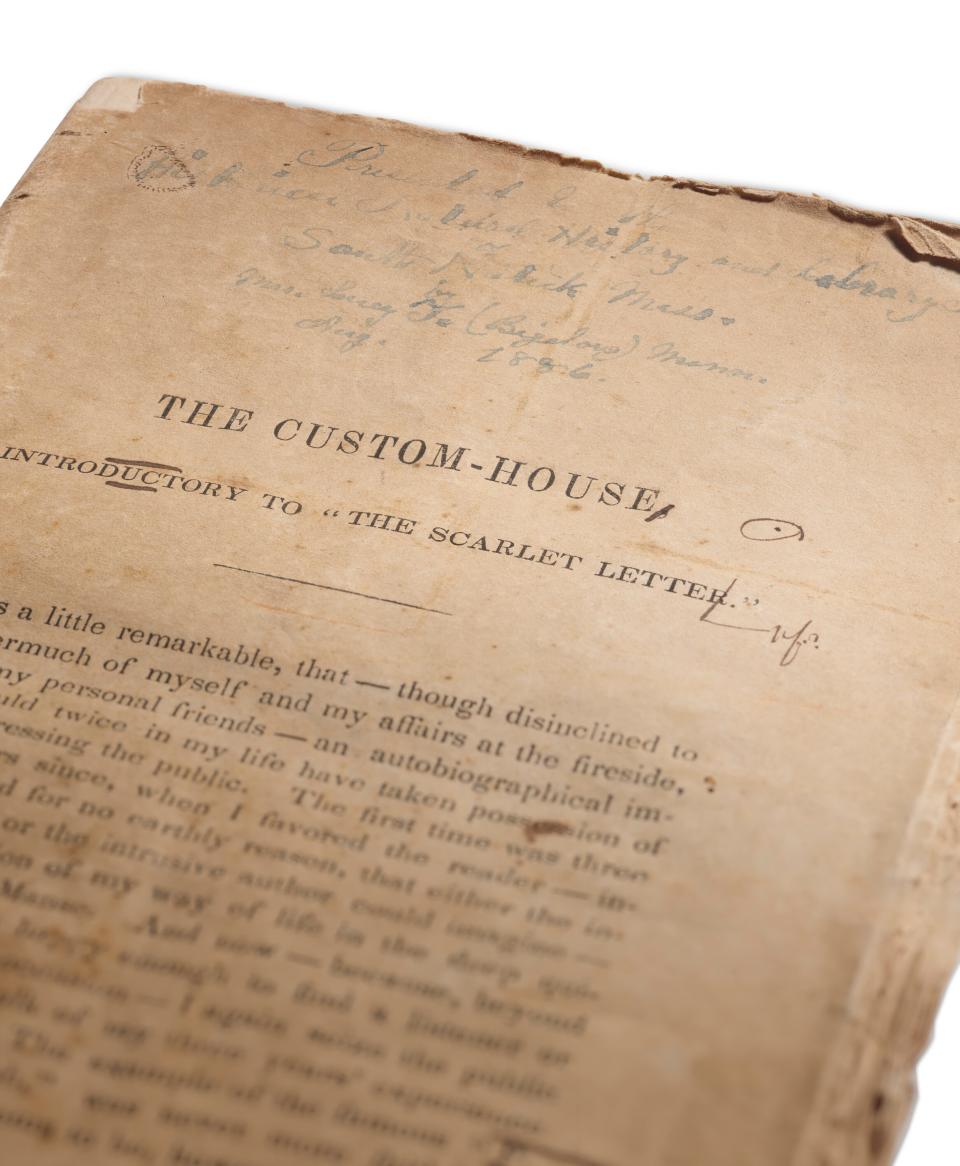 Presented to the
Historical Natural History and Library
South Natick Mass.
by
Mrs. Lucy Fe (Bigelow) Mann.
Aug. 1886.
THE CUSTOM-HOUSE,
INTRODUCTORY TO "THE SCARLET LETTER."
s a little remarkable, that — though disinclined to
ermuch of myself and my affairs at the fireside,
my personal friends — an autobiographical im-
uld twice in my life have taken possession of
ressing the public. The first time was three
rs since, when I favored the reader — in-
d for no earthly reason, that either the in-
or the intrusive author could imagine —
on of my way of life in the deep qui-
Manse. And now — because, beyond
happy enough to find a listener or
I again seize the public
of my three years' experience
The example of the famous
was never more